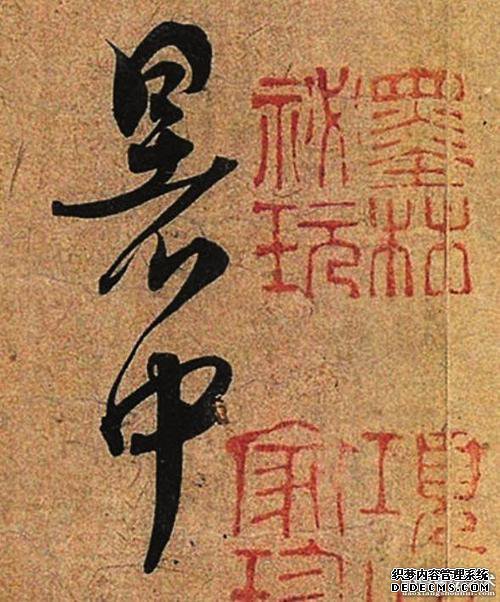 暑中
墨林
祕玩
項
家珍
织梦内容管理系统
DEDECMS.COM